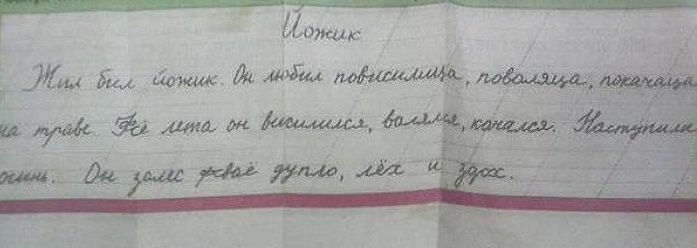 Йожик
Жил был йожик. Он любил повисилица, поваляца, покачаца
на траве. Всё лета он висилился, валялся, качался. Наступила
осинь. Он залес своё дупло, лёх и здох.